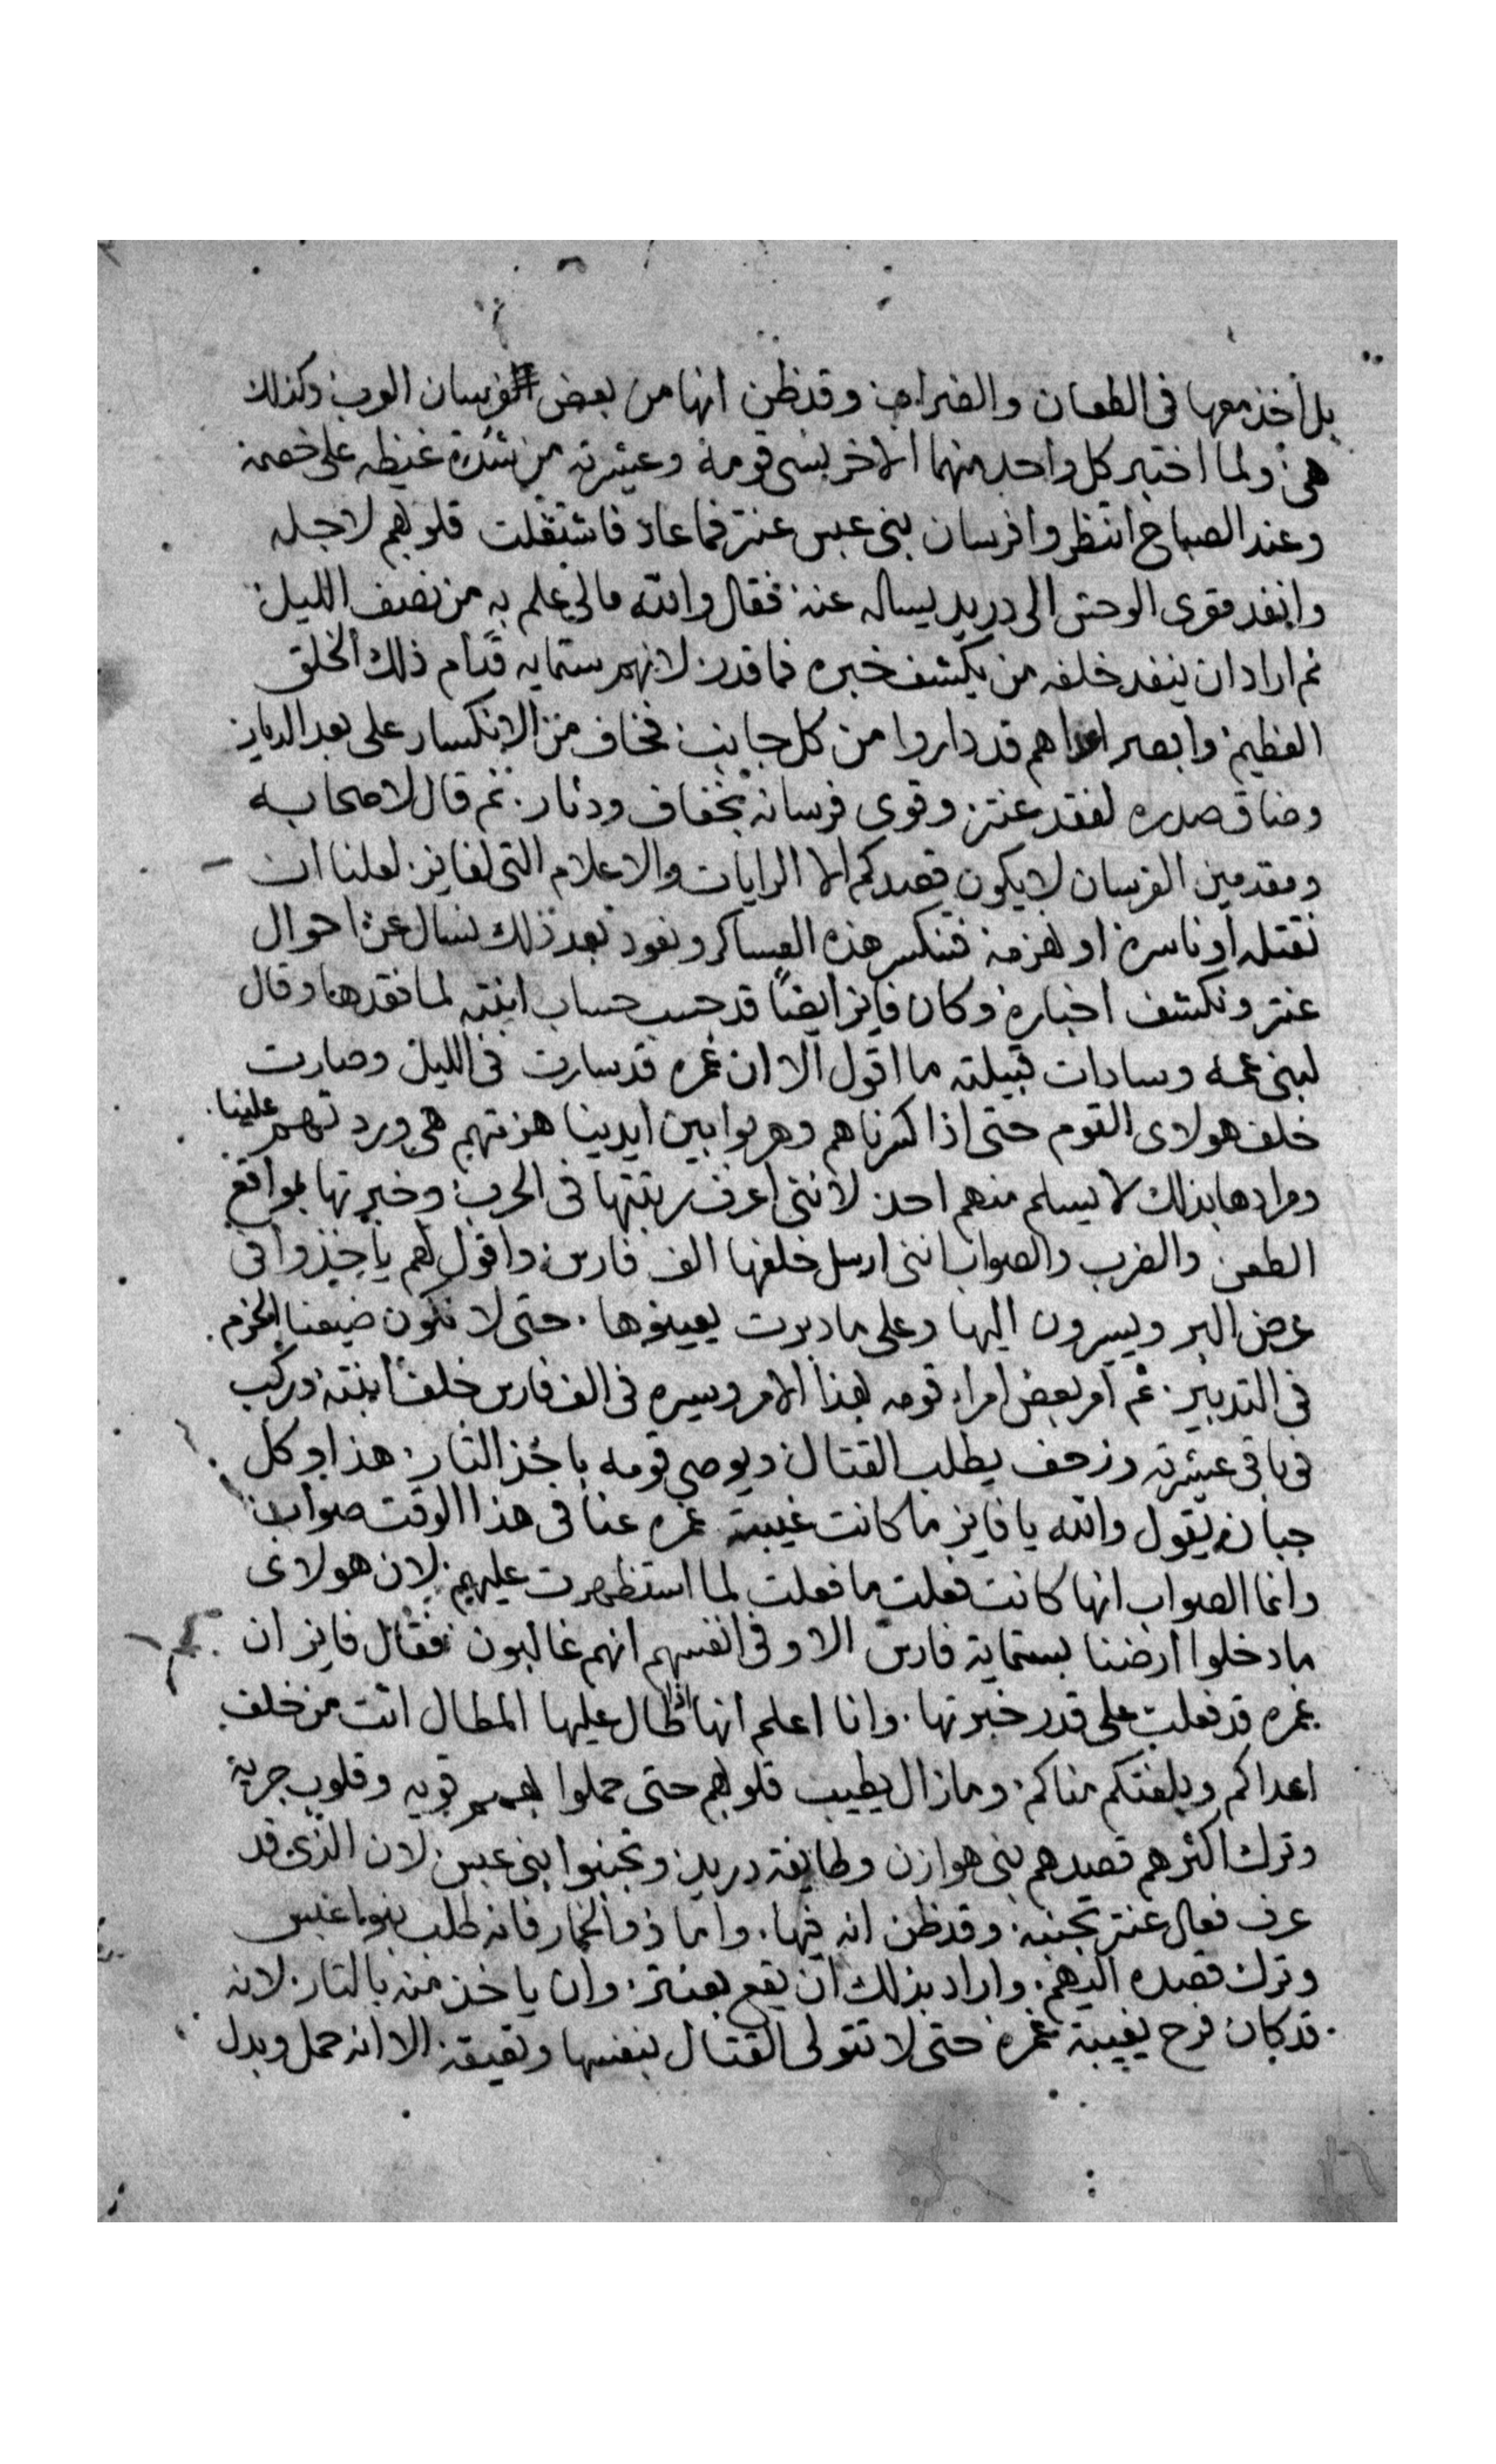 بل أخذ معها فى الطعان والضراب وقد ظن انها من بعض فرسان العرب وكذلك
هى ولما اختبر كل واحد منهما الاخر نسى قومه وعشيرته من شدة غيظه على خصمه
وعند الصباح انتظروا فرسان بنى عبس عنتر فما عاد فاشتغلت قلوبهم لاجله
وانفد مقرى الوحش الى دريد يساله عنه فقال والله مالى علم به من نصف الليل
ثم اراد ان ينفد خلفه من يكشف خبره فما قدر لانهم ستمايه قدام ذلك الخلق
العظيم وابصر اعداهم قد داروا من كل جانب فخاف من الانكسار على بعد الديار
وضاق صدره لفقد عنتر وقوى فرسانه بخفاف ودثار ثم قال لاصحابه
ومقدمين الفرسان لا يكون قصدكم الا الرايات والاعلام التى لفايز لعلنا ان
نقتله او ناسره او نهزمه فتنكسر هذه العساكر ونعود بعد ذلك نسال عن احوال
عنتر ونكشف اخباره وكان فايز ايضاً قد حسب حساب ابنته لما فقدها وقال
لبنى عمه وسادات قبيلته ما اقول الا ان غمره قد سارت فى الليل وصارت
خلف هولاى القوم حتى اذا كسرناهم وهربوا بين ايدينا هزمتهم هى وردتهم علينا
ومرادها بذلك لا يسلم منهم احد لاننى اعرف رتبتها فى الحرب وخبرتها بمواقع
الطعن والضرب والصواب اننى ارسل خلفها الف فارس واقول لهم ياخذوا فى
عرض البر ويسيرون اليها وعلى ما دبرت يعينوها حتى لا نكون ضيعنا الحزم
فى التدبير ثم امر بعض امراء قومه بهذا الامر وسيره فى الف فارس خلف ابنته وركب
فى باقى عشيرته وزحف يطلب القتال ويوصى قومه باخذ الثار هذا وكل
جبان يقول والله يا فايز ما كانت غيبة غمره عنا فى هذا الوقت صواب
وانما الصواب انها كانت فعلت ما فعلت لما استظهرت عليهم لان هولاى
ما دخلوا ارضنا بستماية فارس الا وفى انفسهم انهم غالبون فقال فايز ان
غمره قد فعلت على قدر خبرتها وانا اعلم انها اذا طال عليها المطال اتت من خلف
اعداكم وبلغتكم مناكم وما زال يطيب قلوبهم حتى حملوا بهمم قويه وقلوب جريه
وترك اكثرهم قصدهم بنى هوازن وطايفة دريد وتجنبوا بنى عبس لان الذى قد
عرف فعال عنتر تجنبه وقد ظن انه فيها واما ذو الخمار فانه طلب بنوا عبس
وترك قصده اليهم واراد بذلك ان يقع بعنتر وان ياخذ منه بالثار لانه
قد كان فرح بغيبة غمره حتى لا تتولى القتال بنفسها وتعيقه الا انه حمل وبدل